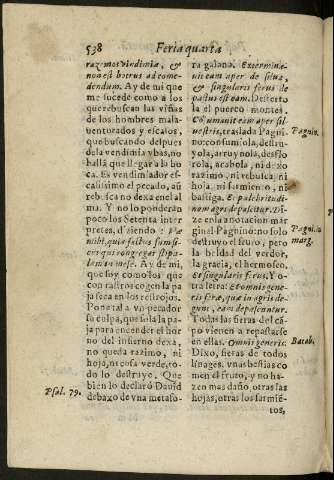 538
Feria quarta
razimos vindimiæ, &
non est botrus ad come-
dendum. Ay de mi que
me sucede como a los
que rebuscan las viñas
de los hombres mala-
uenturados y escasos,
que buscando despues
dela vendimia vbas, no
hallã que llegar a la bo
ca. Es vendimiador es-
casissimo el pecado, aũ
rebusca no dexa en el al
ma. Y no lo ponderan
poco los Setenta inter
pretes, diziendo: Væ
mihi, quia factus sum si-
cut qui congregat stipu-
lam in messe. Ay de mi,
que soy como los que
con rastros cogen la pa
ja seca en los restrojos.
Pone tal a vn pecador
su culpa, que sola la pa-
ja para encender el hor
no del infierno dexa,
no queda razimo, ni
hoja, ni cosa verde, to-
do lo destruye. Que
bien lo declarò Dauid
debaxo de vna metafo-
Psal. 79.
ra galana. Extermina-
uit eam aper de silua,
& singularis ferus de-
pastus est eam. Desterto
la el puerco montes.
Consumauit eam aper sil
uestris, traslada Pagni-
no: consumiola, destru
yola, arruynola, desflo
rola, acabola, ni dexo
razimo, ni rebusca, ni
hoja, ni sarmiento, ni
bastiga. Et pulchritudi-
nem agri depascitur. Di-
ze en la anotacion mar
ginel Pagnino: no solo
destruyo el fruto, pero
la beldad del verdor,
la gracia, el hermoseo.
Et singularis ferus, Y o-
tra letra: Et omnis gene-
ris feræ, quæ in agris de-
gunt, eam depascuntur.
Todas las fieras del cã-
po vienen a repastarse
en ellas. Omnis generis.
Dixo, fieras de todos
linages. vnas bestias co
men el fruto, y no ha-
zen mas daño, otras las
hojas, otras los sarmiẽ-
tos,
Pagnin.
Pagni. in
marg.